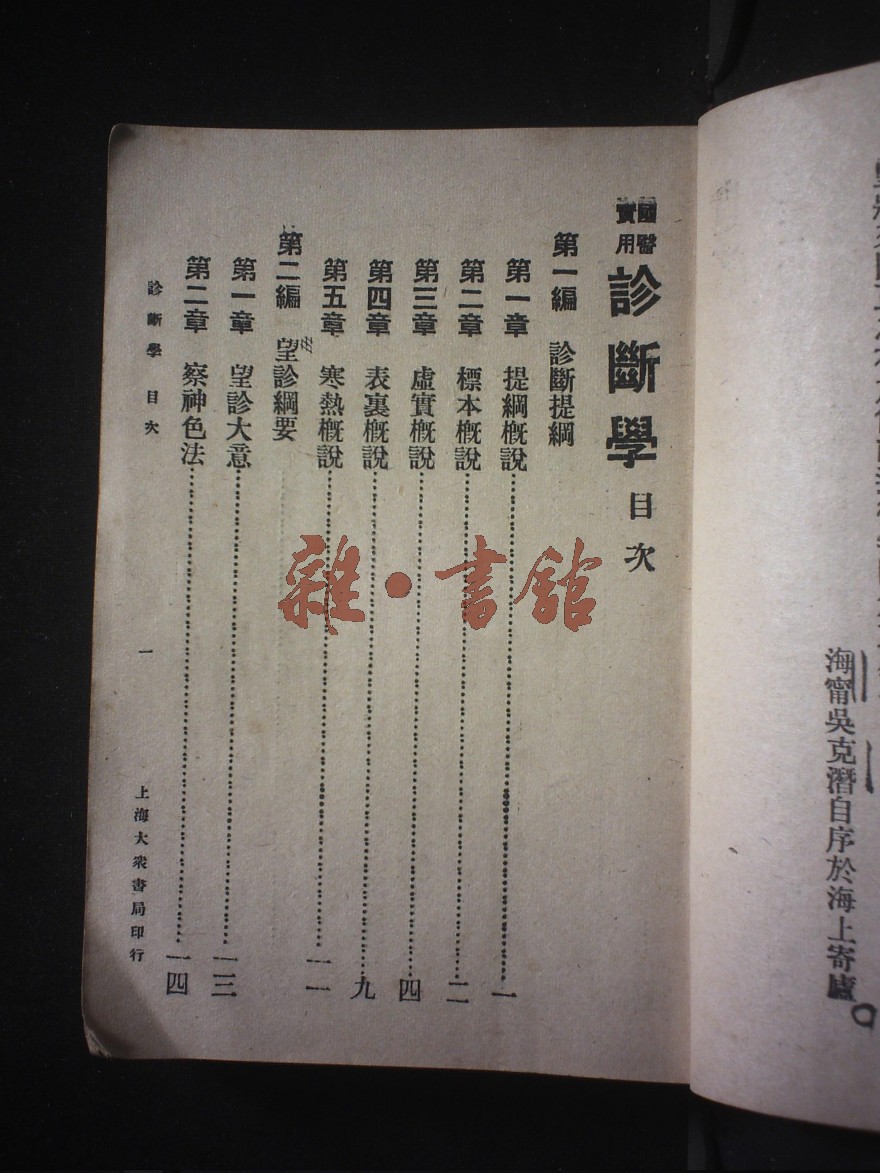 海甯吳克潛自序於海上寄廬
國醫實用診斷學目次
第一編 診斷提綱
第一章 提綱概說 一
第二章 標本概說 二
第三章 虛實概說 四
第四章 表裏概說 九
第五章 寒熱概說 一一
第二編 望診綱要
第一章 望診大意 一三
第二章 察神色法 一四
診斷學 目次 一 上海大衆書局印行
雜·書館